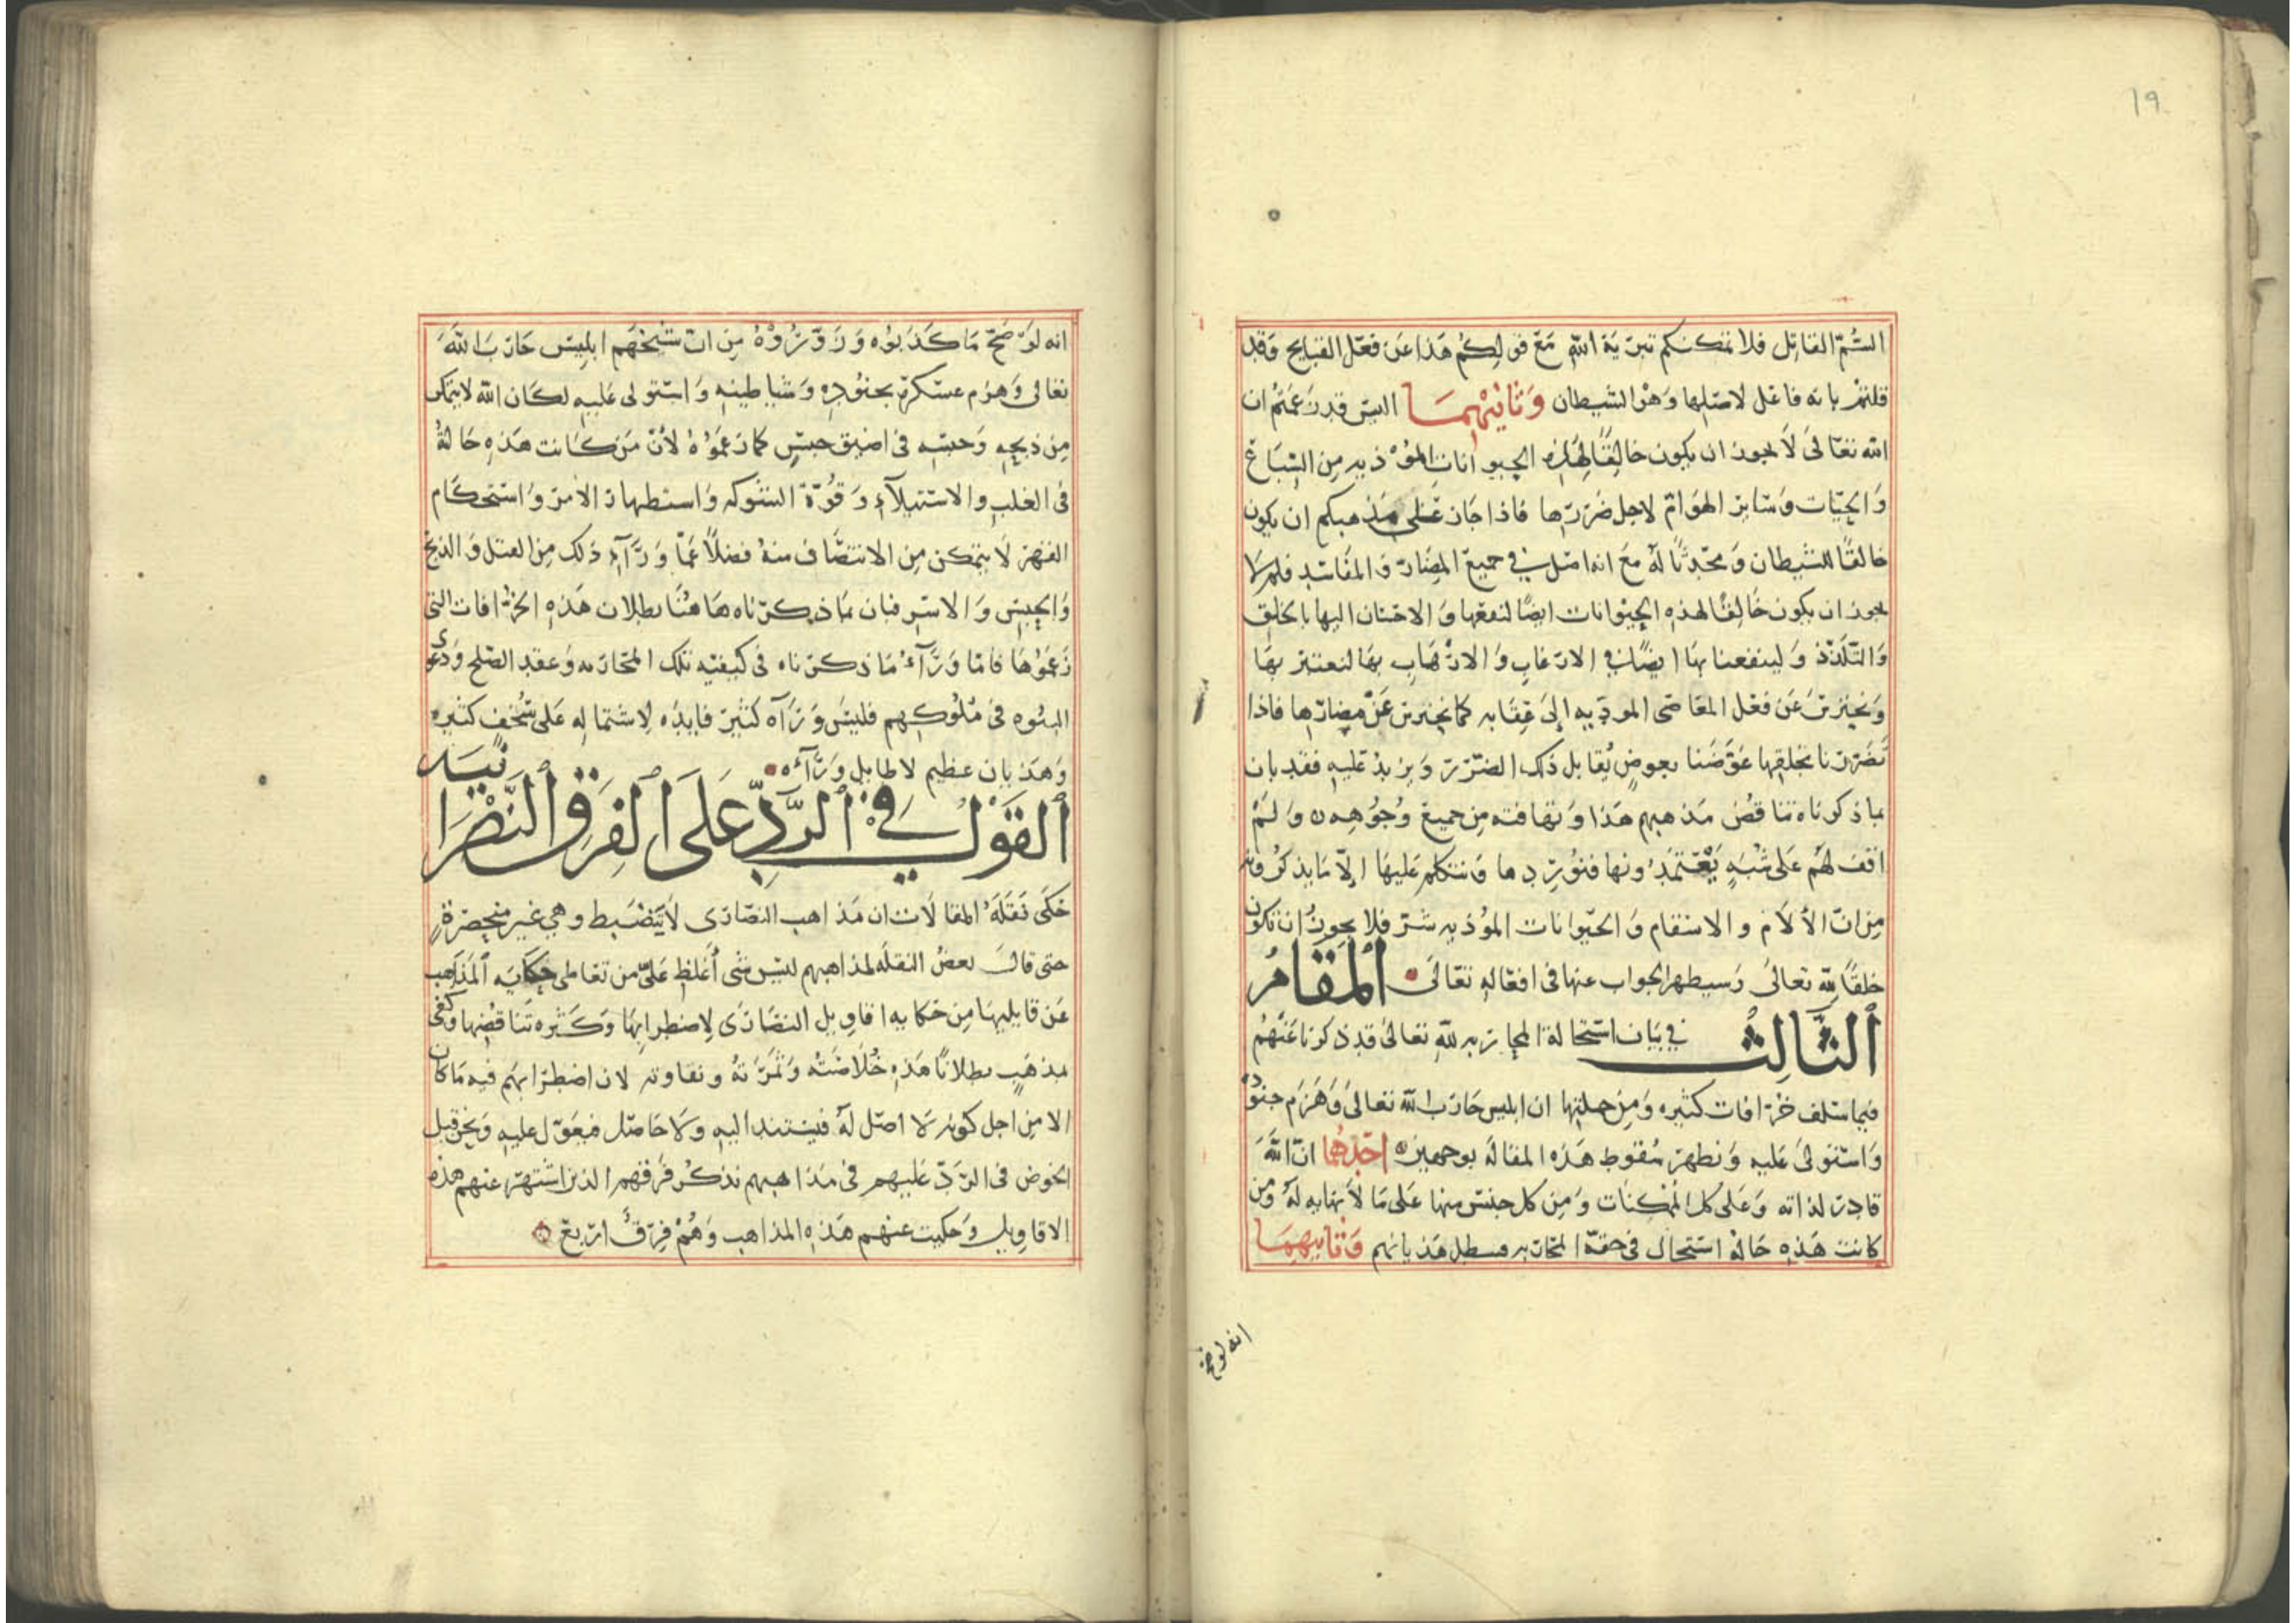 19
السّمّ القاتل فلا تمكنكم تبرية الله مع قولكم هذا عن فعل القبايح وقد
قلتم بانه فاعل لاصلها وهو الشيطان وثانيهما اليس قد زعمتم ان
الله تعالى لا يجوز ان يكون خالقًا لهذه الحيوانات الموذيه من السباع
والحيّات وسائر الهوامّ لاجل ضررها فاذا جاز على مذهبكم ان يكون
خالقًا للشيطان ومحدثًا له مع انه اصل في جميع المضارّ والمفاسد فلم لا
يجوز ان يكون خالقًا لهذه الحيوانات ايضًا لنفعها والاحسان اليها بالخلق
والتلذّذ ولينفعنا بها ايضًا في الارغاب والارهاب بها لنعتبر بها
ونحترس عن فعل المعاصى الموديه الى عقابه كما نحترس عن مضارّها فاذا
تضررنا بخلقها عوّضنا بعوضٍ يُقابل ذلك الضرر ويزيد عليه فقد بان
بما ذكرناه تناقض مذهبهم هذا وتهافته من جميع وجوهه ولم
اقف لهم على شُبَهٍ يعتمدونها فنورِدها ونتكلم عليها الّا ما يذكرونه
من انّ الآلام والاسقام والحيوانات الموذيه شر فلا يجوز ان تكون
خلقًا لله تعالى وسيظهر الجواب عنها فى افعاله تعالى المقام
الثالث في بيان استحالة المحاربه لله تعالى قد ذكرنا عنهم
فيما سلف خرافات كثيره ومن جملتها ان ابليس حارب الله تعالى وهزم جنوده
واستولى عليه ونظهر سقوط هذه المقالة بوجهين احدهما ان الله
قادر لذاته وعلى كل الممكنات ومن كل جنس منها على ما لا نهايه له ومن
كانت هذه حاله استحال فى حقه المحاربه فبطل هذيانهم وثانيهما
انه لو صح
انه لو صحّ ما كذبوه وزوّروه من انّ شيخهم ابليس حارب الله
تعالى وهزم عسكره بجنوده وشياطينه واستولى عليه لكان الله لا يتمكن
من ذبحه وحبسه فى اضيق حبسٍ كما زعموه لأن من كانت هذه حالهُ
فى الغلب والاستيلآء وقُوّة الشوكه واستظهار الامر واستحكام
القهر لا يتمكن من الانتصاف منه فضلاً عمّا ورآء ذلك من القتل والذبح
والحبس والاسر فبان بما ذكرناه هاهنا بطلان هذه الخرافات التى
زعموها فامّا ورآء ما ذكرناه فى كيفيه تلك المحاربه وعقد الصلح ودعوى
البنوه فى ملوكهم فليس ورآه كثير فايده لاشتماله على سُخف كثير
وهذيان عظيم لا طايل ورآءه
القول في الردّ على الفرق النصرانيه
حكى نقله المقالات ان مذاهب النصارى لا ينضبط وهي غير منحصرة
حتى قال بعض النقله لمذاهبهم ليس شى أغلظ علىّ من تعاطى حكايه المذاهب
عن قايليها من حكايه اقاويل النصارى لاضطرابها وكثره تناقضها وكفى
بمذهبٍ بطلانًا هذه خُلاصته وثمرته ونقاوته لان اضطرابهم فيه ما كان
الا من اجل كونه لا اصل له فيستند اليه ولا حاصل فيعوّل عليه ونحن قبل
الخوض فى الردّ عليهم فى مذاهبهم نذكر فرقهم الذين اشتهر عنهم هذه
الاقاويل وحكيت عنهم هذه المذاهب وهُمْ فِرَقٌ اربع